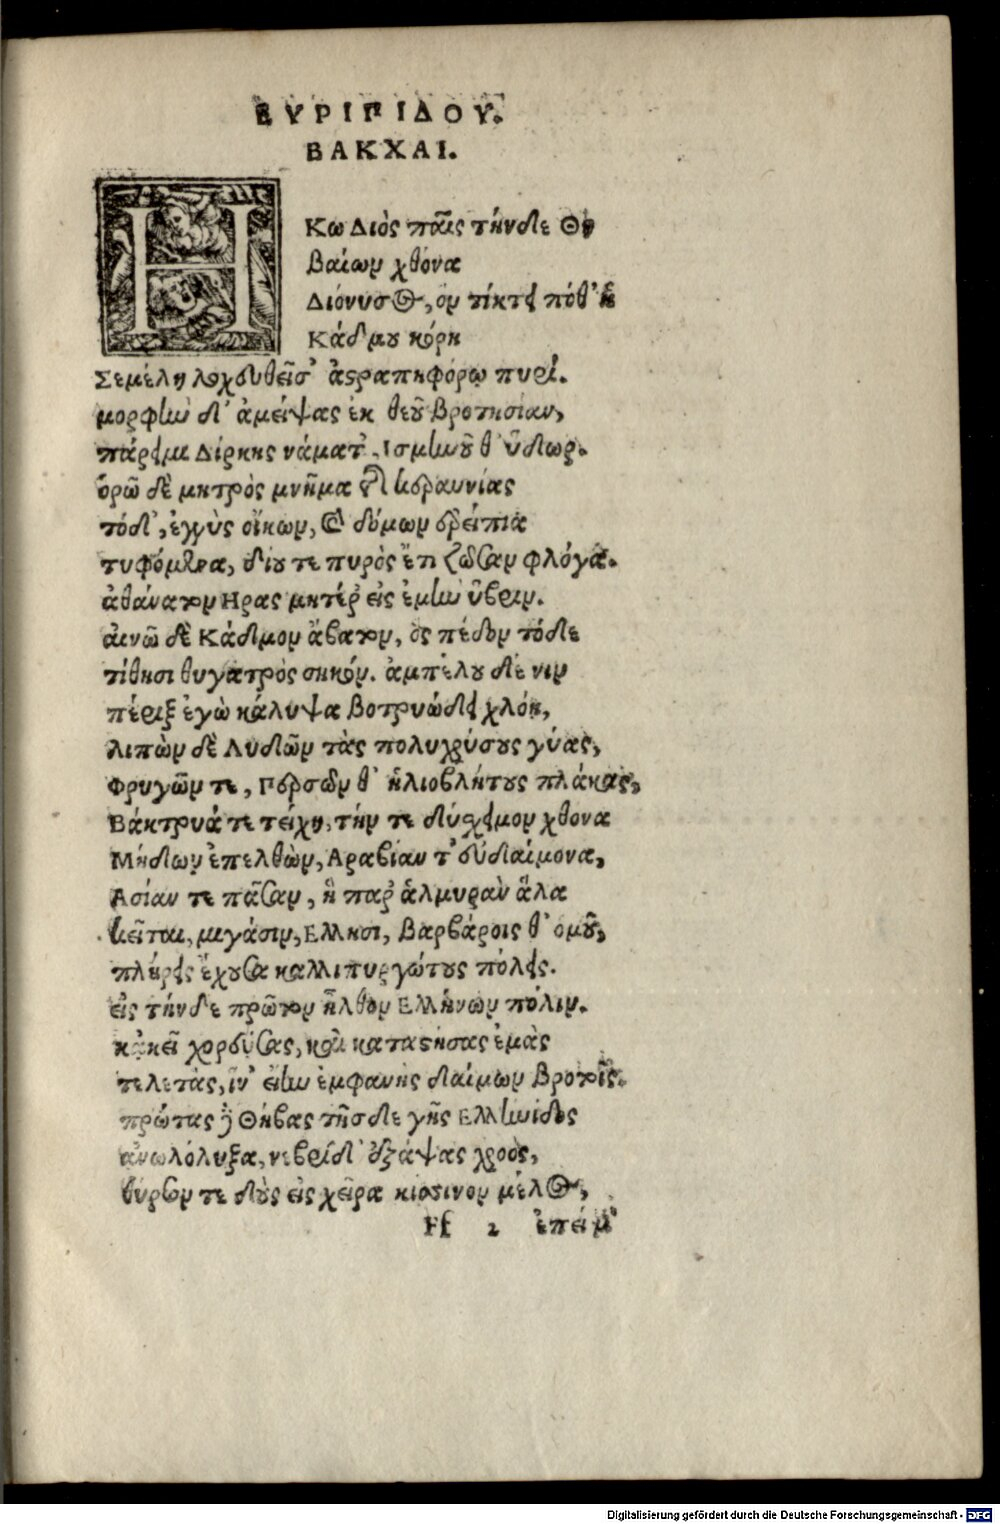 ΕΥΡΙΠΙΔΟΥ.
ΒΑΚΧΑΙ.
ΗΚω Διὸς παῖς τήνδε Θη
βαίων χθόνα
Διόνυσος, ὃν τίκτει πόθ' ἡ
Κάδμου κόρη
Σεμέλη λοχευθεῖσ' ἀστραπηφόρῳ πυρί.
μορφὴν δ' ἀμείψας ἐκ θεοῦ βροτησίαν,
πάρειμι Δίρκης νάματ', Ισμηνοῦ θ' ὕδωρ.
ὁρῶ δὲ μητρὸς μνῆμα τῆς κεραυνίας
τόδ', ἐγγὺς οἴκων, καὶ δόμων ἐρείπια
τυφόμενα, δίου τε πυρὸς ἔτι ζῶσαν φλόγα.
ἀθάνατον Ηρας μητέρ' εἰς ἐμὴν ὕβριν.
αἰνῶ δὲ Κάδμον ἄβατον, ὃς πέδον τόδε
τίθησι θυγατρὸς σηκόν. ἀμπέλου δέ νιν
πέριξ ἐγὼ κάλυψα βοτρυώδει χλόῃ,
λιπὼν δὲ Λυδῶν τὰς πολυχρύσους γύας,
Φρυγῶν τε, Περσῶν θ' ἡλιοβλήτους πλάκας,
Βάκτρυά τε τείχη, τήν τε δύσχειμον χθονα
Μήδων ἐπελθὼν, Αραβίαν τ' εὐδαίμονα,
Ασίαν τε πᾶσαν, ἣ παρ' ἁλμυρὰν ἅλα
κεῖται, μιγάσιν, Ελλησι, βαρβάροις θ' ὁμοῦ,
πλήρεις ἔχουσα καλλιπυργώτους πόλεις.
εἰς τήνδε πρῶτον ἦλθον Ελλήνων πόλιν.
κἀκεῖ χορεύσας, καὶ καταστήσας ἐμὰς
τελετὰς, ἵν' εἴην ἐμφανὴς δαίμων βροτοῖς.
πρώτας δὲ Θήβας τῆσδε γῆς Ελληνίδος
ἀνωλόλυξα, νεβρίδ' ἐξάψας χροὸς,
θύρσον τε δοὺς εἰς χεῖρα κισσινον μέλος,
Ff 2 ἐπεί μ'
Digitalisierung gefördert durch die Deutsche Forschungsgemeinschaft - DFG